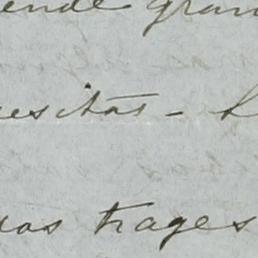 ende gran
esitas -
das trages